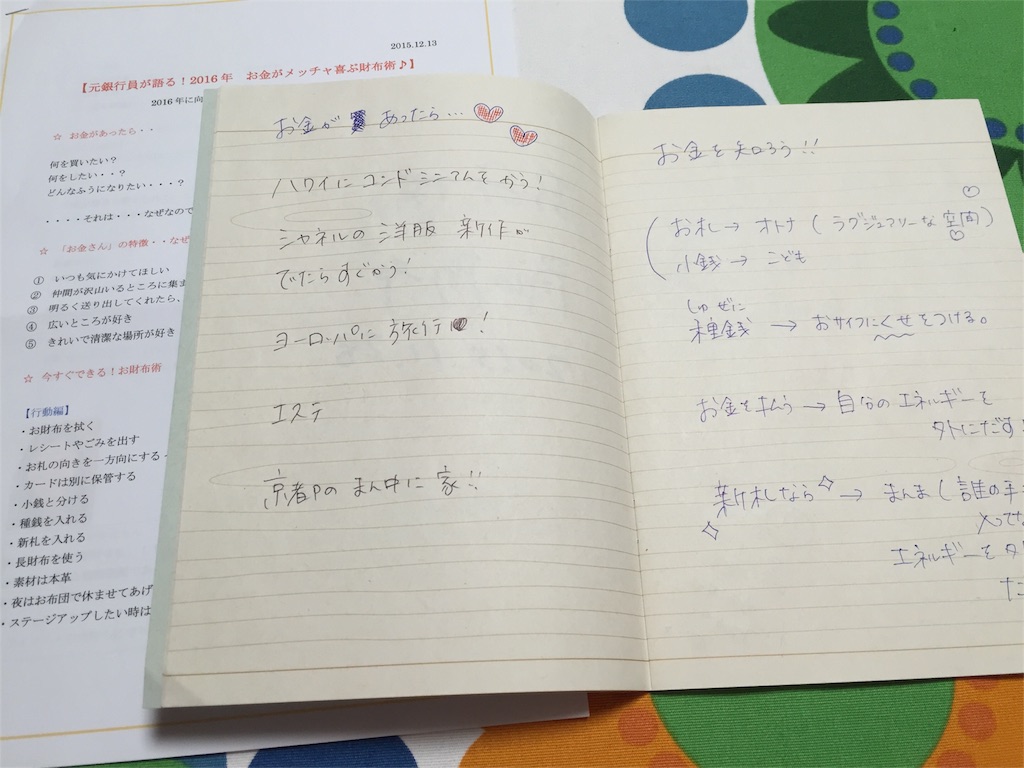 2015.12.13
【元銀行員が語る！2016年　お金がメッチャ喜ぶ財布術♪】
2016年に向
☆ お金があったら・・
何を買いたい？
何をしたい・・？
どんなふうになりたい・・・？
・・・・それは・・・なぜなので
☆ 「お金さん」の特徴・・なぜ
① いつも気にかけてほしい
② 仲間が沢山いるところに集ま
③ 明るく送り出してくれたら、
④ 広いところが好き
⑤ きれいで清潔な場所が好き
☆ 今すぐできる！お財布術
【行動編】
・お財布を拭く
・レシートやごみを出す
・お札の向きを一方向にする
・カードは別に保管する
・小銭と分ける
・種銭を入れる
・新札を入れる
・長財布を使う
・素材は本革
・夜はお布団で休ませてあげ
・ステージアップしたい時は
お金が あったら…
ハワイにコンドミニアムをかう！
シャネルの洋服 新作が
でたらすぐかう！
ヨーロッパに旅行！
エステ
京都のまん中に家!!
お金を知ろう!!
お札→オトナ（ラグジュアリーな空間）
小銭→こども
しゅぜに
種銭→おサイフにくせをつける。
お金を払う→自分のエネルギーを
外にだす
新札なら→まんま（誰の手
エネルギーを